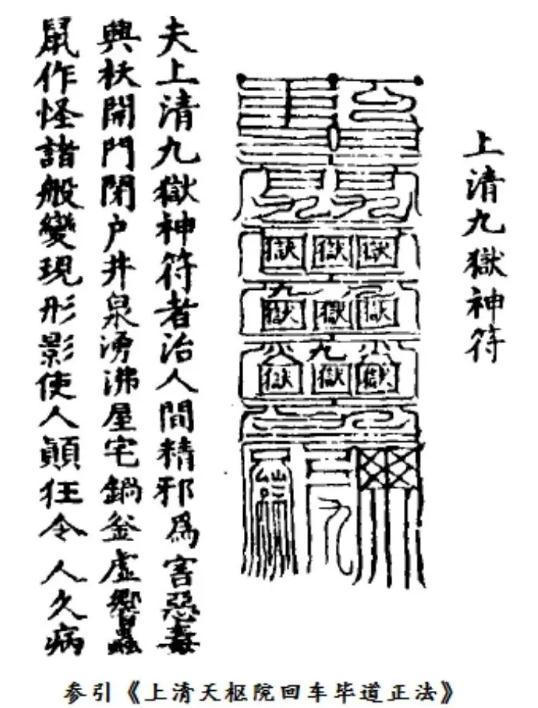 上清九獄神符
獄獄獄
九
獄獄獄
九
獄獄獄
夫上清九獄神符者治人間精邪爲害惡毒
興開門閉户井泉湧沸屋宅鍋釜虛響蟲
鼠作怪諸般變現形影使人顛狂令人久病
参引《上清天枢院回车毕道正法》